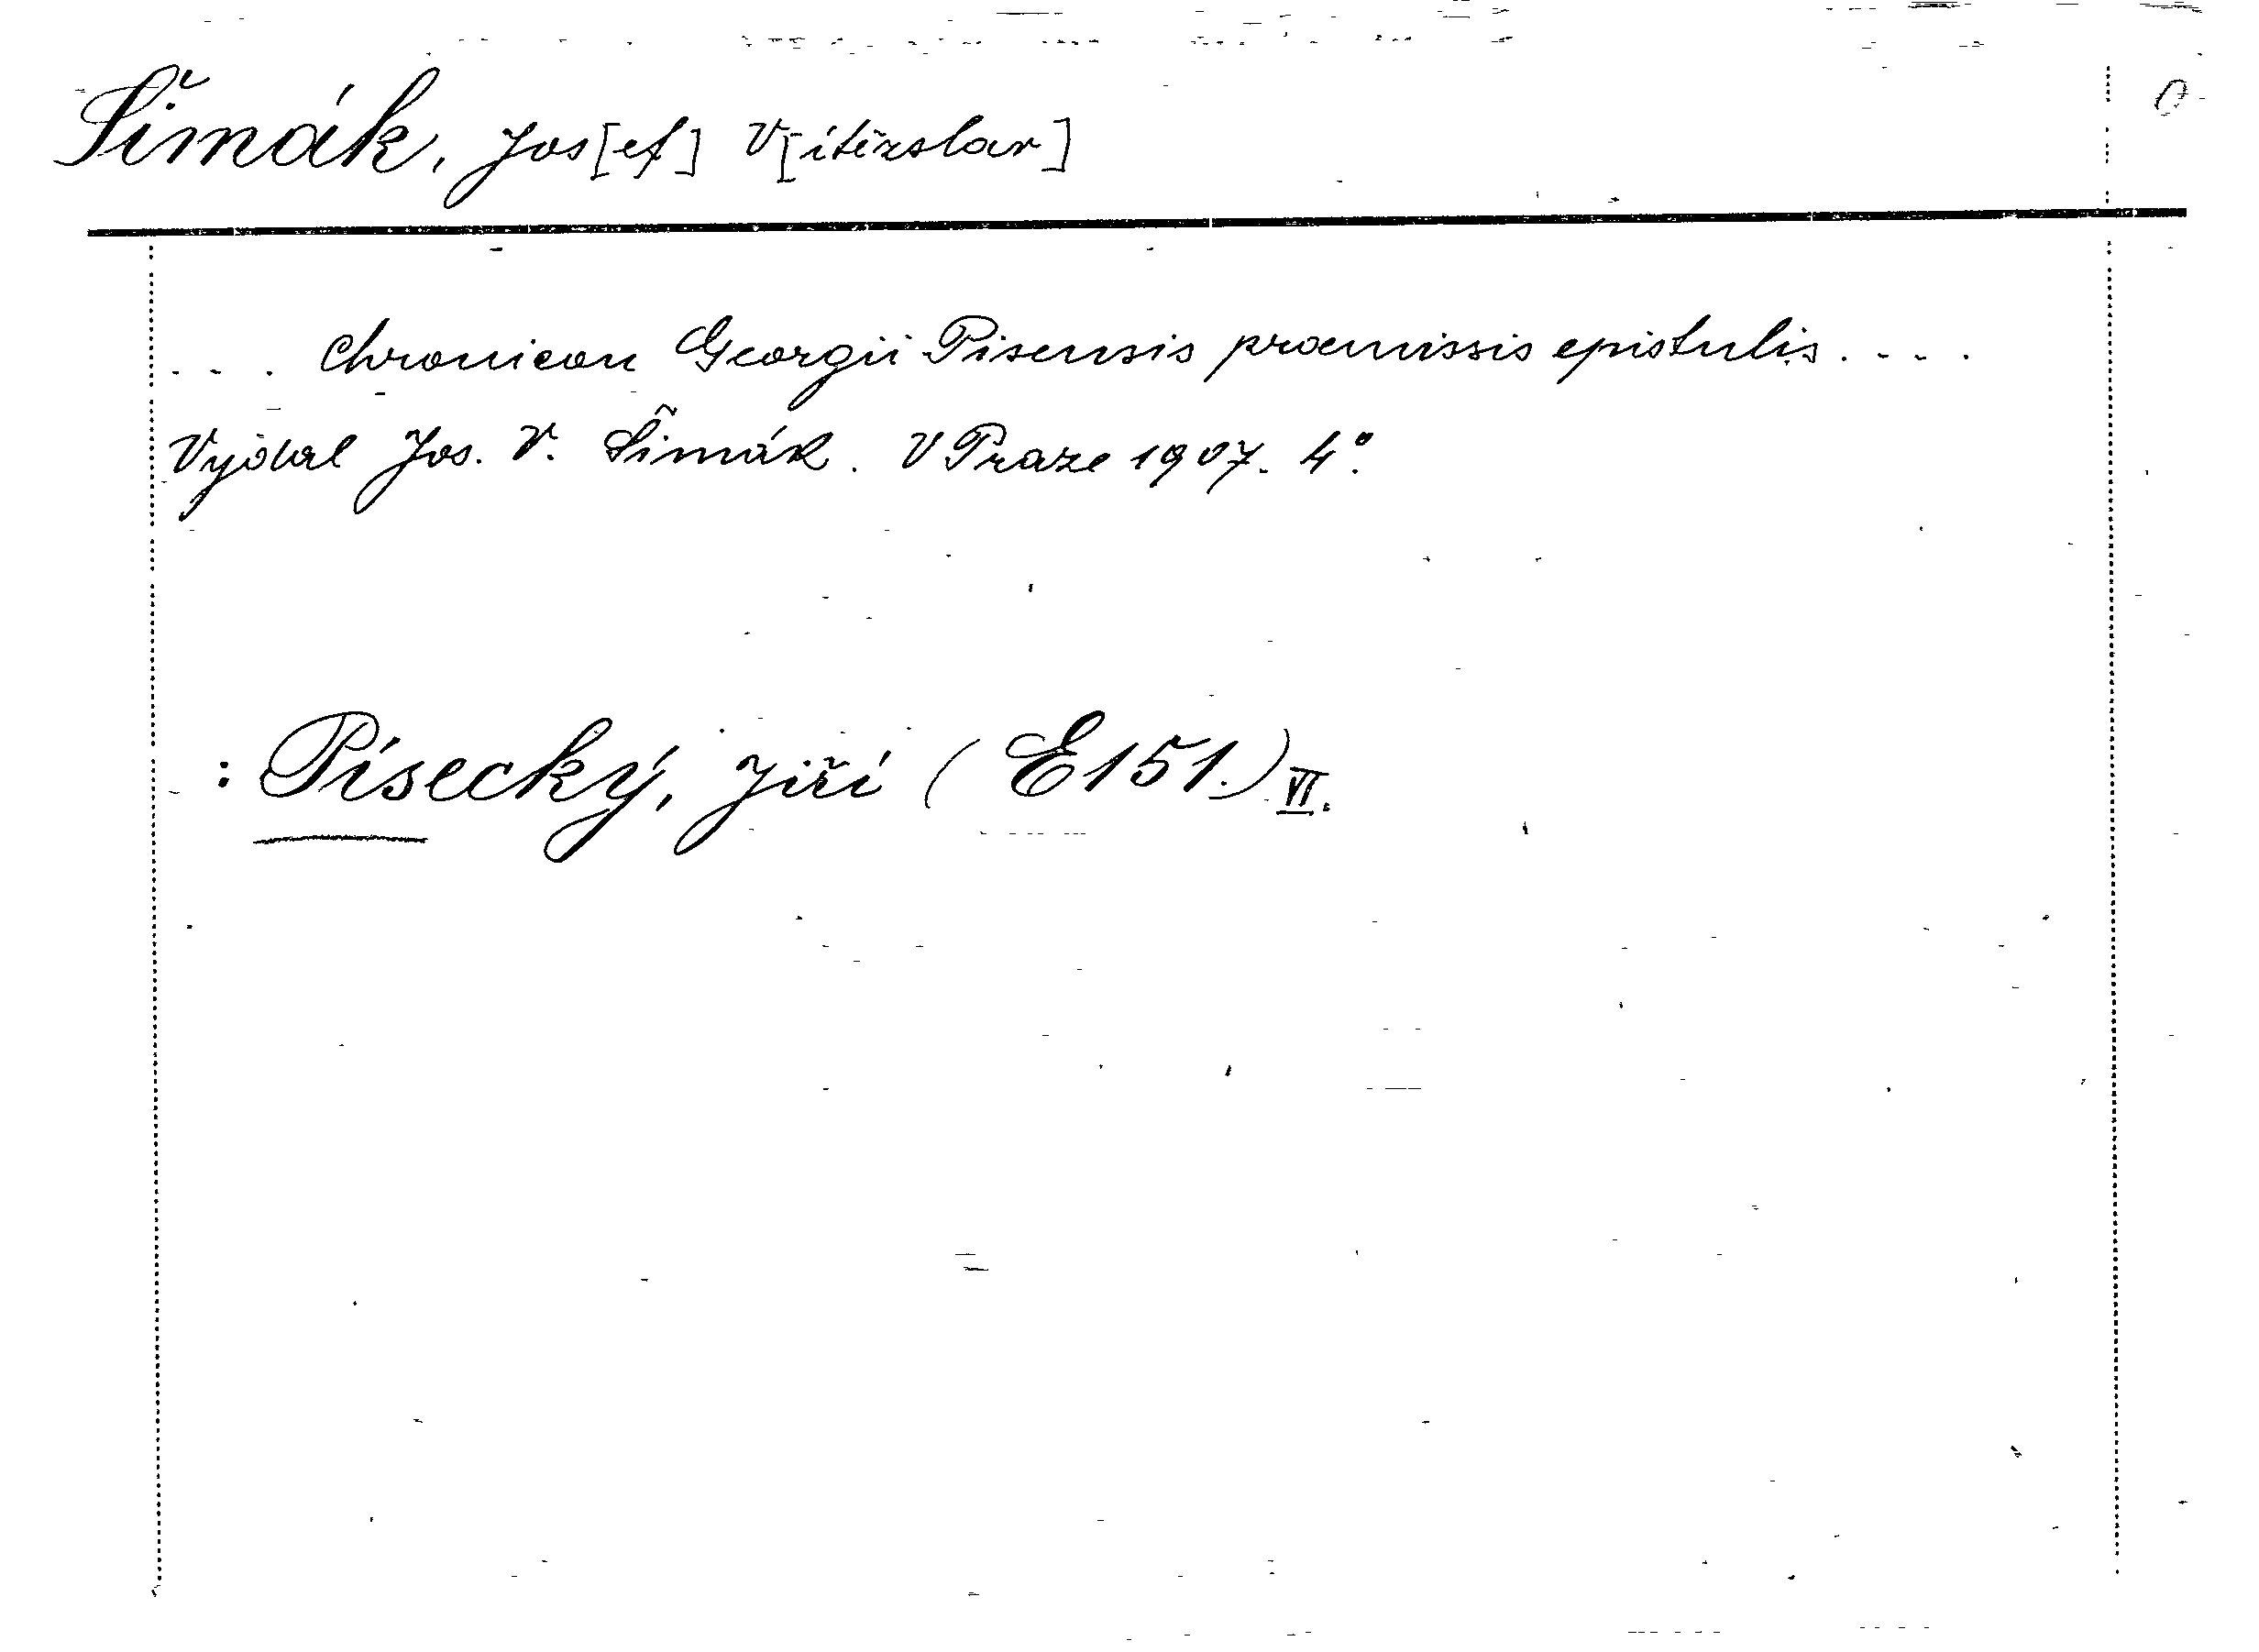 Šimák, Jos[ef] V[ítězslav] 0
... Chronicon Georgii Pisensis praemissis epistulis....
Vydal Jos. V. Šimák. V Praze 1907. 4°.
: Písecký, Jiří (E151.) VI.